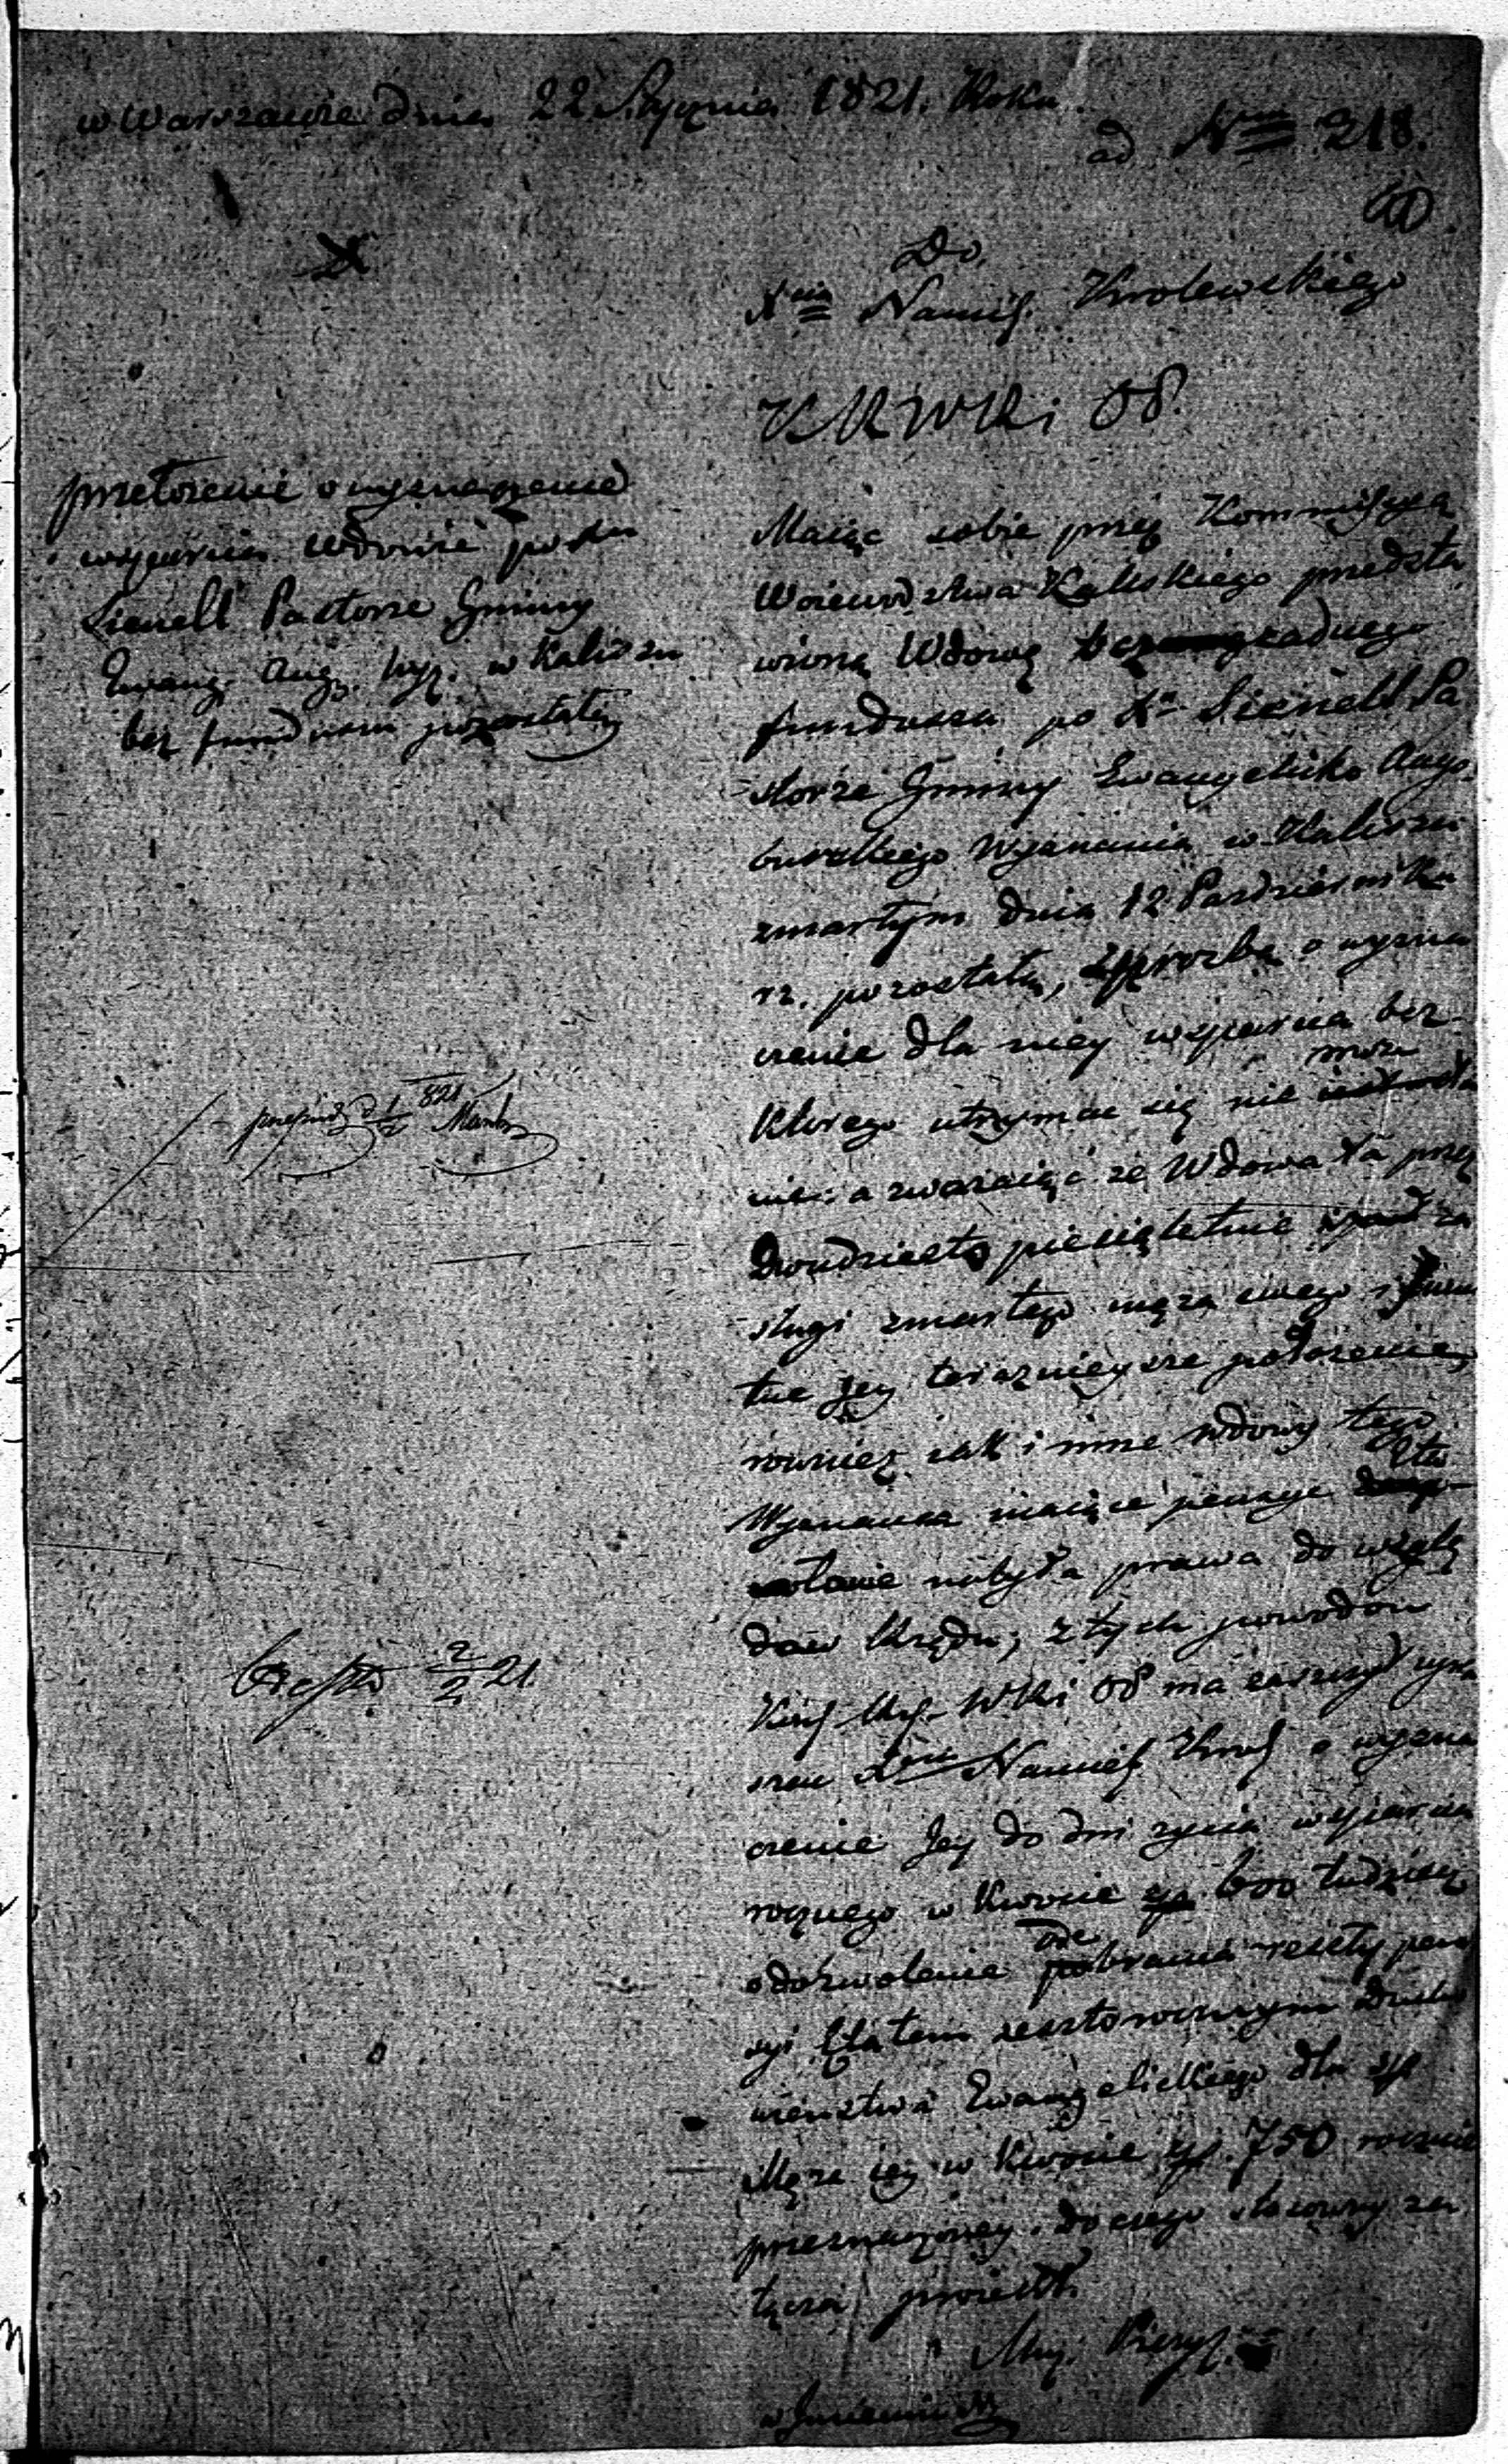 w Warszawie dnia 22 Stycznia 1821. Roku.
ad Nrum 218.
Do
Xcia Namies. Krolewskiego
K R W R i O P.
przełożenie o wyznaczenie
wsparcia Wdowie po Xu
Sienell Pastorze Gminy
Ewang. Aug. wyz. w Kaliszu
bez funduszu pozostałey
Maiąc sobie przez Kommissyą
Woiewodztwa Kaliskiego przedsta
wioną Wdowę bez żadnego
funduszu po Xu Sienell Pa
storze Gminy Ewangelicko Augs
burskiego Wyznania w Kaliszu
zmarłym dnia 12 Pazdziernika
r.z. pozostałą, z prozbą o wyzna
czenie dla niey wsparcia bez
ktorego utrzymac się nie może
nie: a zwazaiąc że Wdowa ta przez
Dwudziesto pięcioletnie za
sługi zmarłego męza swego i smu
tne Jey teraznieysze położenie,
rownież iak i inne wdowy tego
Wyznania maiące pensye Eta
towe nabyła prawa do wzglę
dow Rządu; z tych powodow
Kis. Rz. W Ri OP ma zaszczyt upra
szac Xcia Namies Krol o wyzna
czenie Jey do dni zycia wsparcia
rocznego w kwocie zp. 600 tudzież
o dozwolenie odebrania reszty pen
syi Etatem zeszłorocznym Ducho
wieństwa Ewangelickiego dla sp
Męza iey w kwocie zp. 750 rocznie
przeznaczoney. do czego stosowny za
łącza proiekt.
przejrz. d 1/2 821
2/2 21.